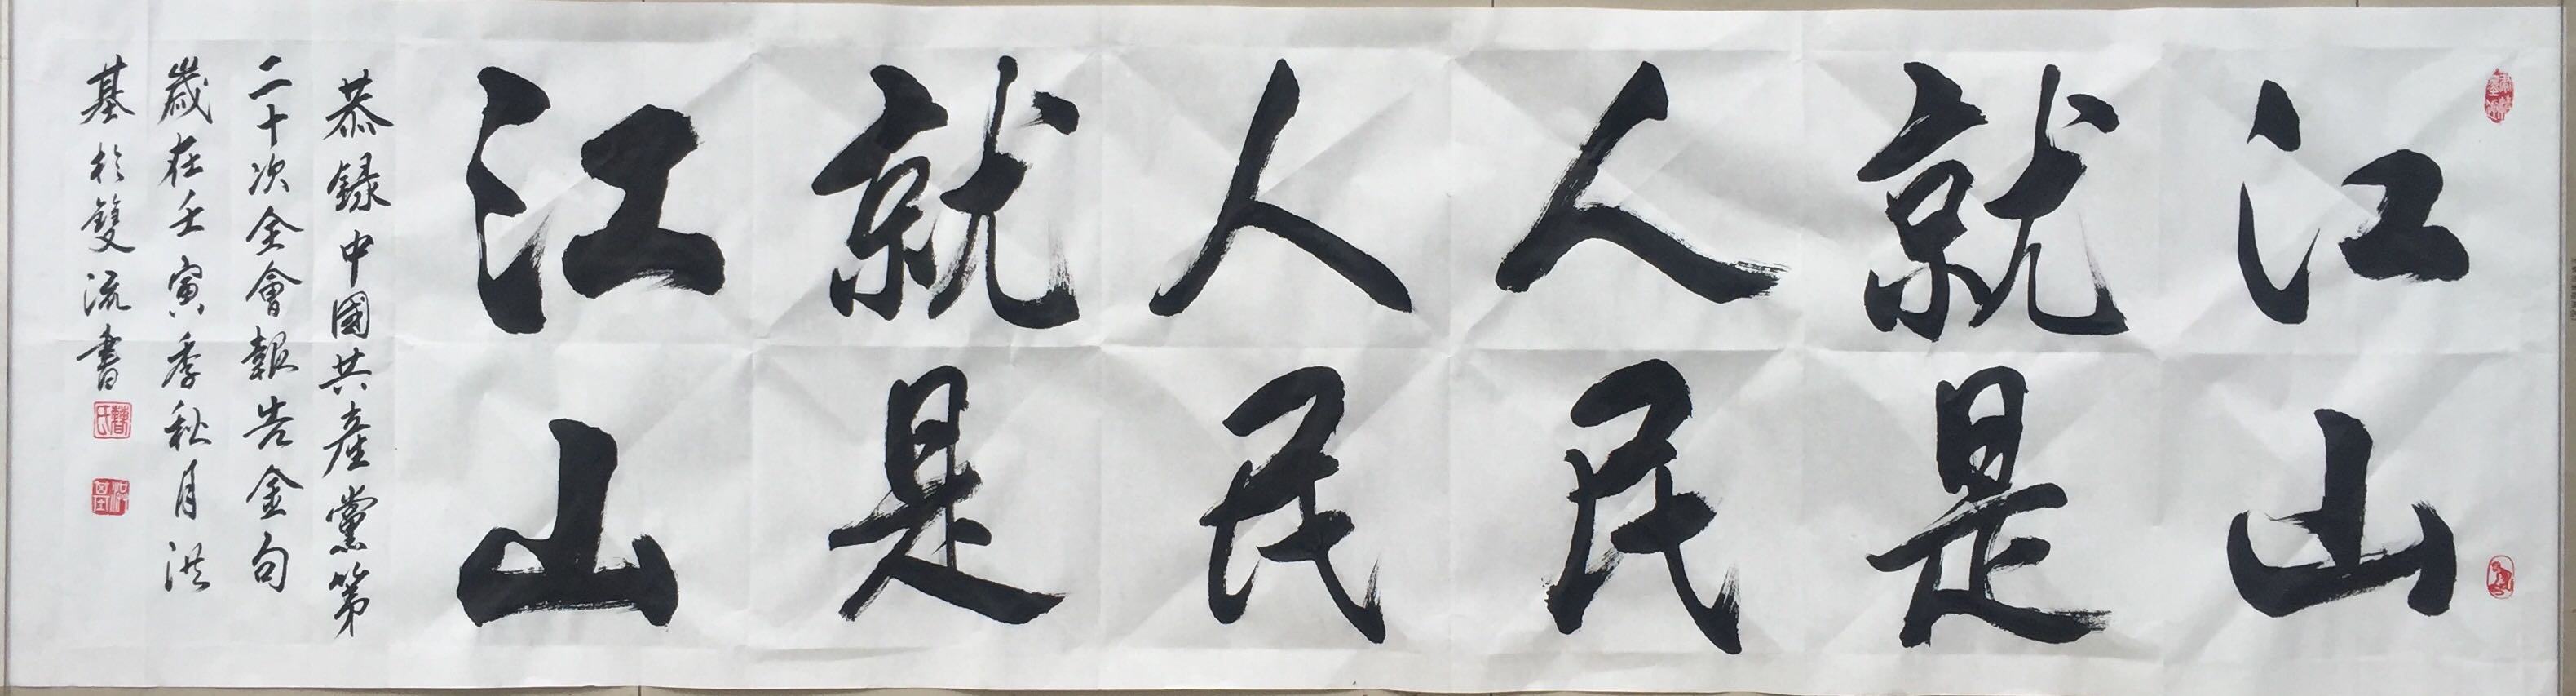 江山
就是
人民
人民
就是
江山
恭録中國共產黨第
二十次全會報告金句
歲在壬寅季秋月洪
基於雙流書